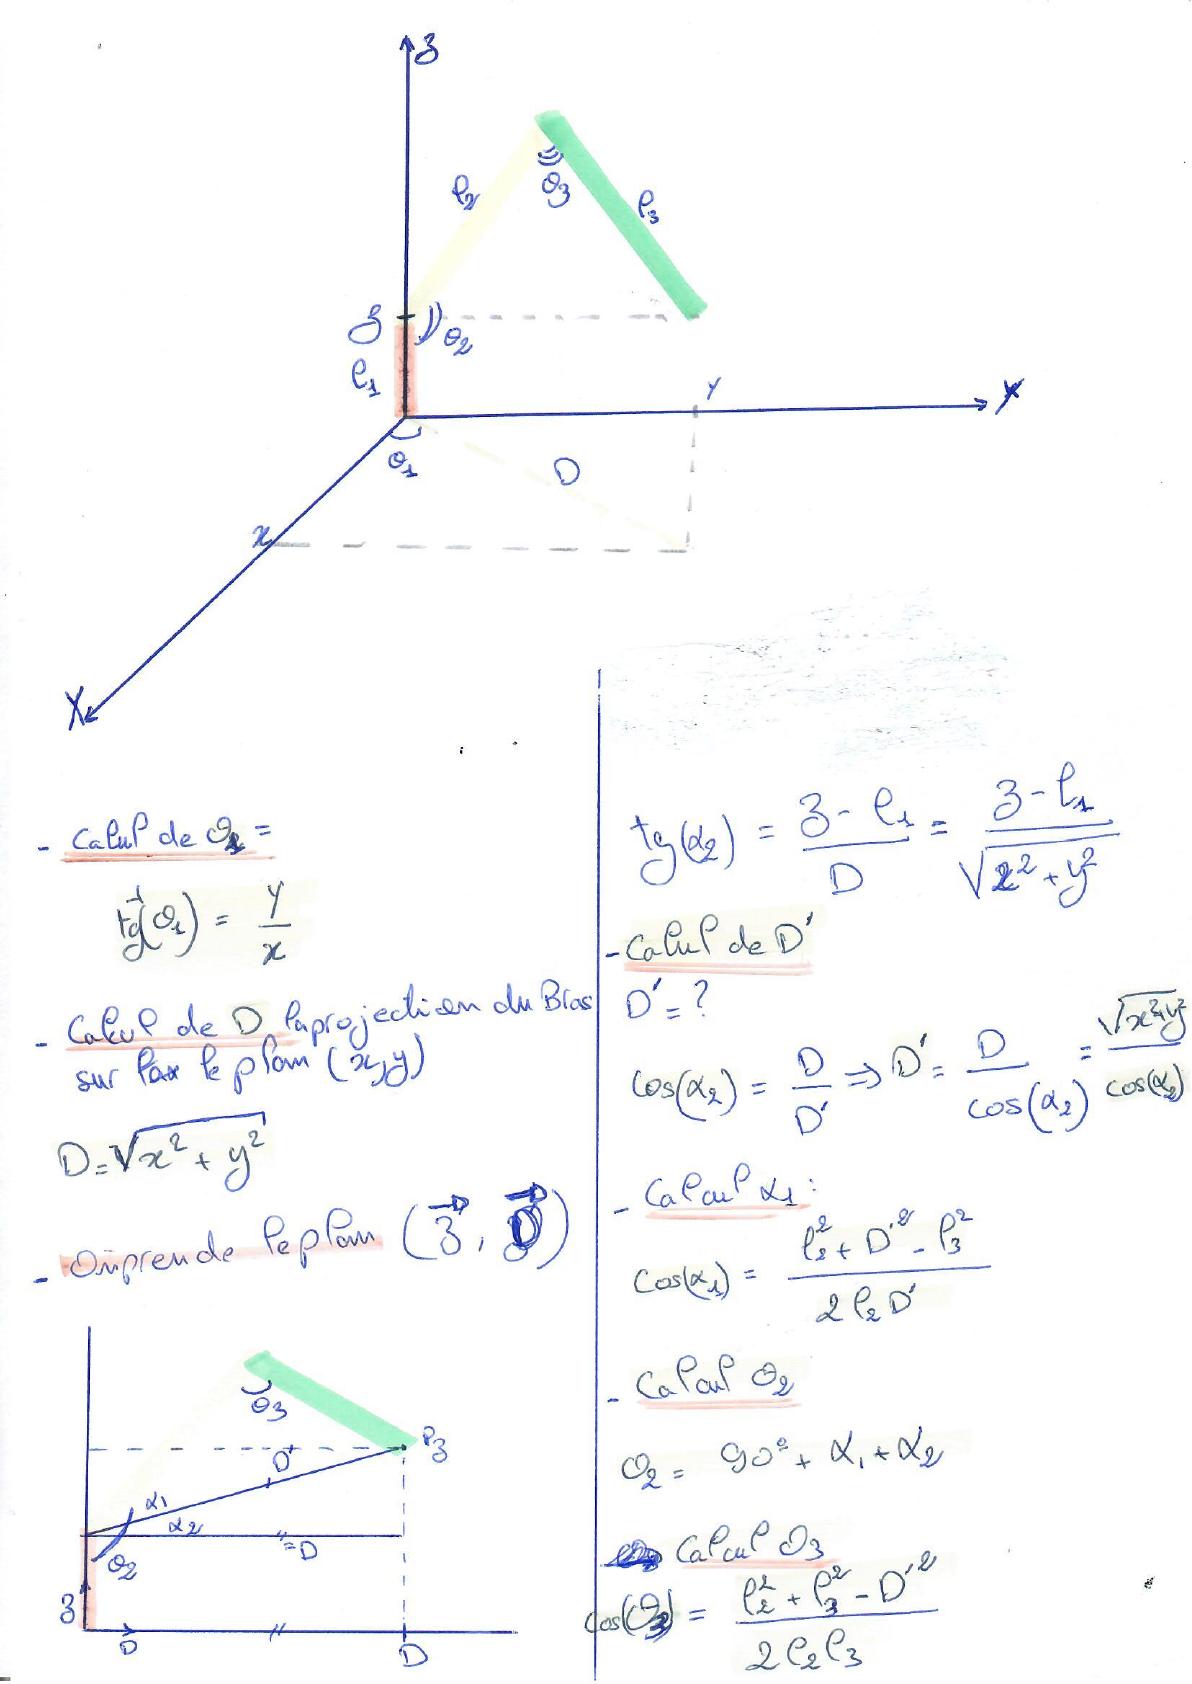 z
l₂
θ₃
l₃
z
θ₂
l₁
y
Y
θ₁
D
x
X
- Calcul de θ₁ =
tg⁻¹(θ₁) = y/x
- Calcul de D la projection du Bras
sur le plan (x,y)
D = √(x² + y²)
- On prende le plan (z⃗, D⃗)
θ₃
l₃
D'
α₁
α₂
= D
θ₂
z
D
D
tg(α₂) = (z - l₁)/D = (z - l₁)/√(x² + y²)
- Calcul de D'
D' = ?
cos(α₂) = D/D' ⇒ D' = D/cos(α₂) = √(x²+y²)/cos(α₂)
- Calcul α₁ :
cos(α₁) = (l₂² + D'² - l₃²)/(2 l₂ D')
- Calcul θ₂
θ₂ = 90° + α₁ + α₂
Calcul θ₃
cos(θ₃) = (l₂² + l₃² - D'²)/(2 l₂ l₃)